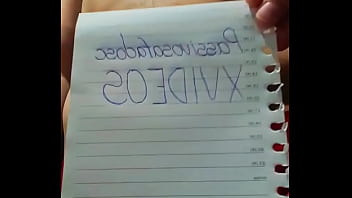 Passivosafadosc
XVIDEOS